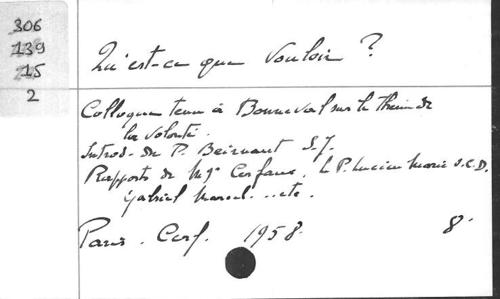 306
139
15
2
Qu'est-ce que vouloir ?
Colloque tenu à Bonneval sur le thème de
la volonté.
Introd. du P. Beirnaert S.J.
Rapports de Mgr Cerfaux, le P. Lucien Marie O.C.D.
Gabriel Marcel... etc.
Paris. Cerf. 1958. 8°